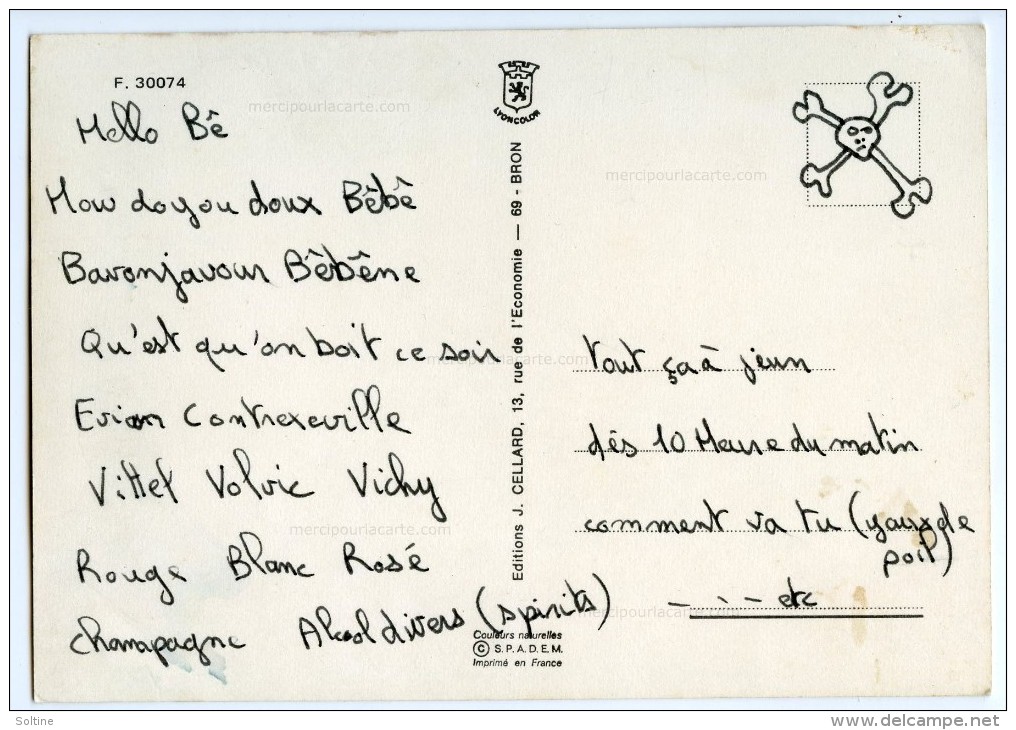 F. 30074
mercipourlacarte.com
Hello Bê
How do you doux Bêbê
Bavonjavour Bêbêne
Qu'est qu'on boit ce soir
mercipourlacarte.com
Evian Contrexeville
Vittel Volvic Vichy
mercipourlacarte.com
Rouge Blanc Rosé
Champagne Alcool divers (spirits)
LYONCOLOR
Editions J. CELLARD, 13, rue de l'Economie — 69 - BRON
Couleurs naturelles
© S.P.A.D.E.M.
Imprimé en France
mercipourlacarte.com
tout ça à jeun
dés 10 Heure du matin
comment va tu (yaux de
poil)
- . - - etc
mercipourlacarte.com
Soltine
www.delcampe.net